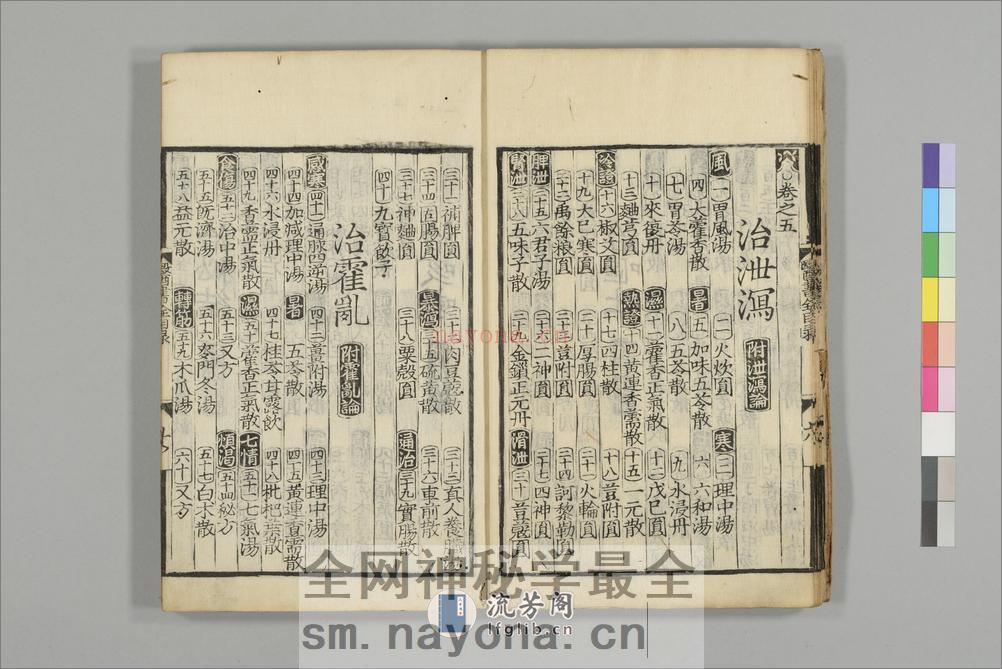 卷之五
治泄瀉 附泄瀉論
風 一 胃風湯 二 火炊圓 寒 三 理中湯
四 大藿香散 暑 五 加味五苓散 六 六和湯
七 胃苓湯 八 五苓散 九 水浸丹
十 來復丹 濕 十一 藿香正氣散 十二 戊己圓
十三 麯芎圓 熱證 十四 黃連香薷散 十五 一元散
冷證 十六 椒艾圓 十七 四柱散 十八 荳附圓
十九 大巳寒圓 二十 厚腸圓 二十一 火輪圓
二十二 禹餘粮圓 二十三 荳附圓 二十四 訶黎勒圓
脾泄 二十五 六君子湯 二十六 二神圓 二十七 四神圓
腎泄 二十八 五味子散 二十九 金鎖正元丹 滑泄 三十 荳蔻圓
三十一 補脾圓 三十二 肉豆蔻散 三十三 真人養臟湯
三十四 固腸圓 暴瀉 三十五 硫黃散 三十六 車前散
三十七 神麯圓 三十八 粟殼圓 通治 三十九 實腸散
四十 九寶飲子
治霍亂 附霍亂論
風寒 四十一 通脉四逆湯 四十二 薑附湯 四十三 理中湯
四十四 加減理中湯 暑 五苓散 四十五 黃連香薷散
四十六 水浸丹 四十七 桂苓甘露飲 四十八 枇杷葉散
四十九 香薷正氣散 濕 五十 藿香正氣散 七情 五十一 七氣湯
食傷 五十二 治中湯 五十三 又方 煩渴 五十四 秘方
五十五 旣濟湯 五十六 麥門冬湯 五十七 白朮散
五十八 益元散 轉筋 五十九 木瓜湯 六十 又方
nayona.cn
全网神秘学最全
流芳阁
lfglib.cn
sm.nayona.cn